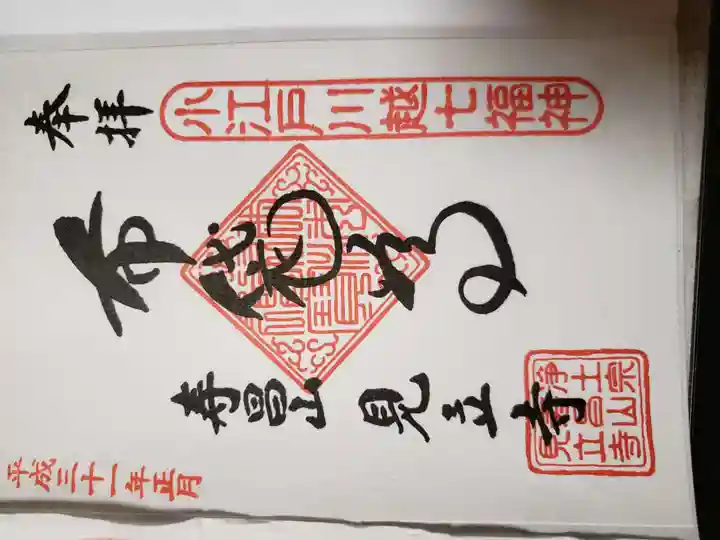 奉拝
小江戸川越七福神
布袋尊
寿昌山 見立寺
浄土宗
寿昌山
見立寺
平成三十一年正月